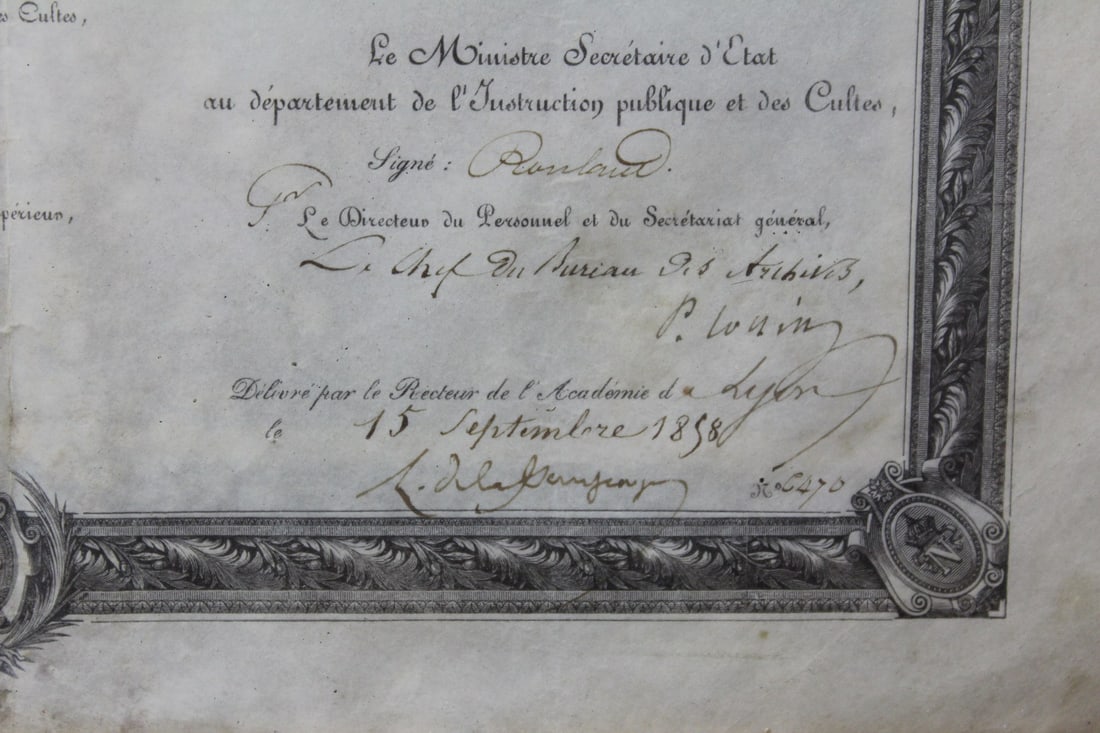 es Cultes,
Le Ministre Secrétaire d'Etat
au département de l'Instruction publique et des Cultes,
Signé : Rouland.
Pr Le Directeur du Personnel et du Secrétariat général,
périeur,
Le Chef du Bureau des Archives,
P. Lorain
Délivré par le Recteur de l'Académie de Lyon
le 15 Septembre 1858
L. de la Saussaye
No 6470
N